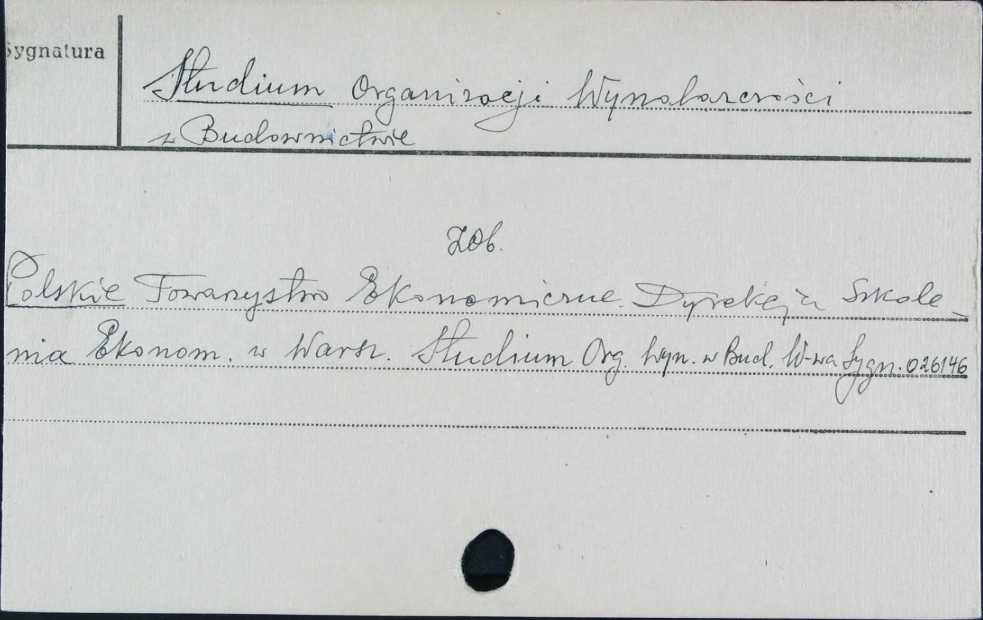 Sygnatura
Studium Organizacji Wynalazczości
w Budownictwie
Zob.
Polskie Towarzystwo Ekonomiczne. Dyrekcja Szkole_
nia Ekonom. w Warsz. Studium Org. Wyn. w Bud. W-wa Sygn. 026146